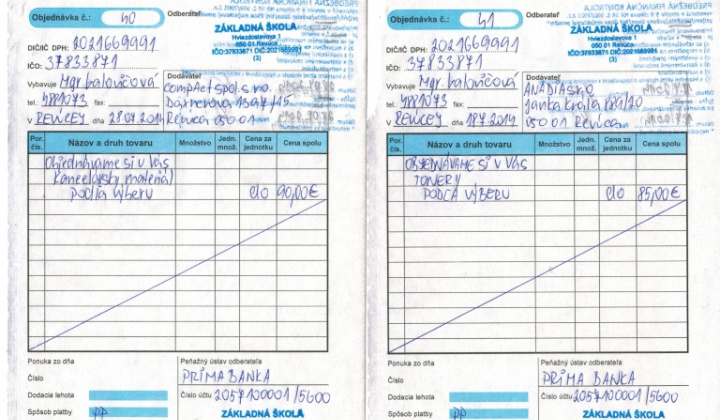 Objednávka č.: 40
Odberateľ
ZÁKLADNÁ ŠKOLA
Hviezdoslavova 1
050 01 Revúca
IČO:37833871 DIČ:2021669991
(3)
DIČ/IČ DPH: 2021669991
IČO: 37833871
Vybavuje Mgr. Balovičová
tel.: 4881073 fax:
V REVÚCEJ dňa 28.07.2014
Dodávateľ
COMPACT spol. s r.o.
Revúca 050 01
Por. čís.
Názov a druh tovaru
Množstvo
Jedn. množ.
Cena za jednotku
Cena spolu
Objednávame si u Vás
Kancelársky materiál
Podľa výberu
do 90,00€
Ponuka zo dňa
Číslo
Dodacia lehota
Spôsob platby PP
Peňažný ústav odberateľa
PRIMA BANKA
Číslo účtu 2057100001/5600
ZÁKLADNÁ ŠKOLA
Objednávka č.: 41
Odberateľ
ZÁKLADNÁ ŠKOLA
Hviezdoslavova 1
050 01 Revúca
IČO:37833871 DIČ:2021669991
(3)
DIČ/IČ DPH: 2021669991
IČO: 37833871
Vybavuje Mgr. Balovičová
tel.: 4881073 fax:
V REVÚCEJ dňa 18.7.2014
Dodávateľ
ANADIA s.r.o
Janka Kráľa
050 01 Revúca
Por. čís.
Názov a druh tovaru
Množstvo
Jedn. množ.
Cena za jednotku
Cena spolu
OBJEDNÁVAME SI U VÁS
TONERY
PODĽA VÝBERU
do 85,00€
Ponuka zo dňa
Číslo
Dodacia lehota
Spôsob platby PP
Peňažný ústav odberateľa
PRIMA BANKA
Číslo účtu 2057100001/5600
ZÁKLADNÁ ŠKOLA